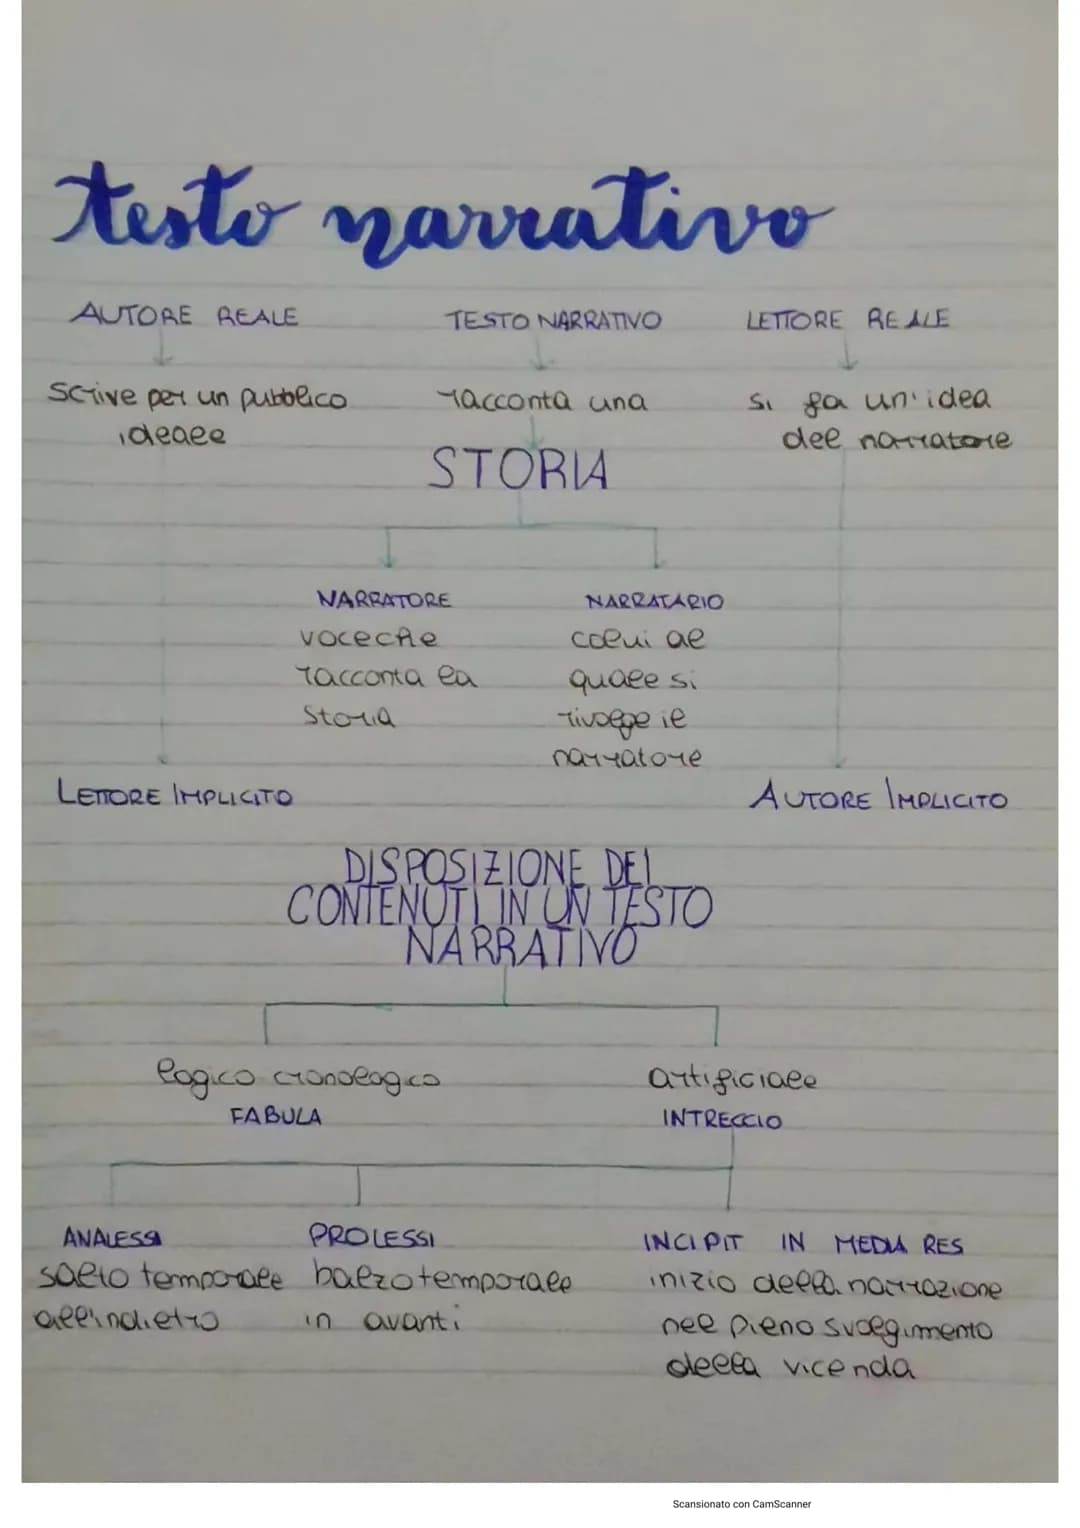 testo narrativo
AUTORE REALE
TESTO NARRATIVO
LETTORE REALE
scrive per un pubblico
ideale
racconta una
STORIA
si fa un'idea
del narratore
NARRATORE
voce che
racconta la
storia
NARRATARIO
colui al
quale si
rivolge il
narratore
LETTORE IMPLICITO
AUTORE IMPLICITO
DISPOSIZIONE DEI
CONTENUTI IN UN TESTO
NARRATIVO
logico cronologico
FABULA
artificiale
INTRECCIO
ANALESSI
salto temporale
all'indietro
PROLESSI
balzo temporale
in avanti
INCIPIT IN MEDIA RES
inizio della narrazione
nel pieno svolgimento
della vicenda
Scansionato con CamScanner